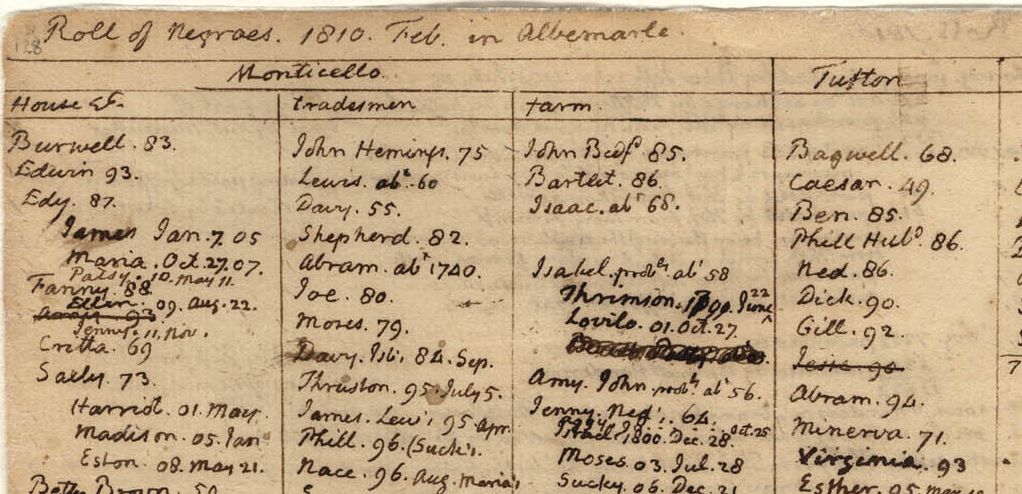 128
Roll of Negroes. 1810. Feb. in Albemarle.
Monticello
House &c.
Burwell. 83.
Edwin 93.
Edy. 87.
James Jan. 7. 05
Maria. Oct. 27. 07.
Patsy. 10. May 11.
Fanny 88
Ellen. 09. Aug. 22.
Jenny. 11. Nov.
Critta. 69
Sally. 73.
Harriet. 01. May.
Madison. 05. Jan
Eston. 08. May 21.
Betty Brown. 59
tradesmen
John Hemings. 75
Lewis. abt. 60
Davy. 55.
Shepherd. 82.
Abram. abt 1740.
Joe. 80.
Moses. 79.
Davy. Isb's. 84. Sep.
Thruston. 95. July 5.
James. Lew's 95 Apr.
Phill. 96. (Suck's.
Nace. 96. Aug. Maria's
farm.
John Bedfd. 85.
Bartlet. 86.
Isaac. abt 68.
Isabel. probly. abt 58
Thrimson. 1799. June 22
Lovilo. 01. Oct. 27.
Amy. John. probly. abt 56.
Jenny. Ned's. 64.
Israel. 1800. Dec. 28.
Moses. 03. Jul. 28
Sucky. 06. Dec. 21
Tufton
Bagwell. 68.
Caesar. 49.
Ben. 85.
Phill Hubd. 86.
Ned. 86.
Dick. 90.
Gill. 92.
Jesse. 90
Abram. 94.
Minerva. 71.
Virginia. 93
Esther. 95.